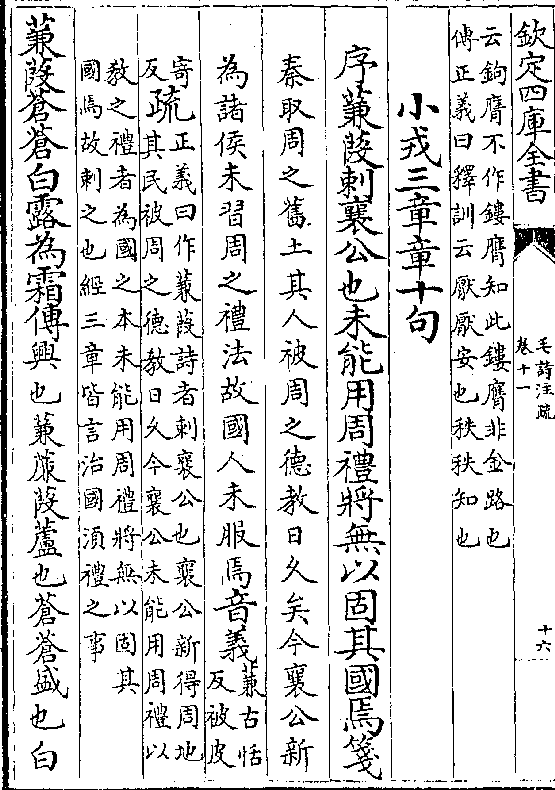 欽定四庫全書
毛詩注疏
卷十一
十六
云鉤膺不作鏤膺知此鏤膺非金路也
傳正義曰釋訓云厭厭安也秩秩知也
小戎三章章十句
序蒹葭刺襄公也未能用周禮將無以固其國焉箋
秦取周之舊土其人被周之德教日久矣今襄公新
為諸侯未習周之禮法故國人未服焉音義蒹古恬
反被皮
寄
疏正義曰作蒹葭詩者刺襄公也襄公新得周地
反其民被周之德教日久今襄公未能用周禮以
教之禮者為國之本未能用周禮將無以固其
國焉故刺之也經三章皆言治國須禮之事
蒹葭蒼蒼白露為霜傳興也蒹薕葭蘆也蒼蒼盛也白